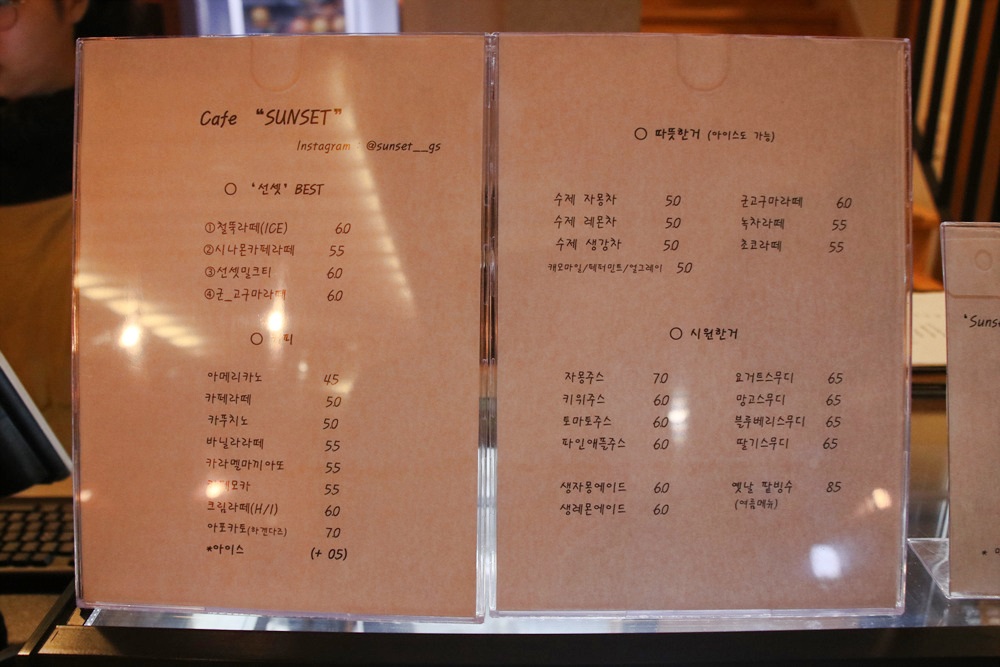 Cafe “SUNSET”
Instagram : @sunset__gs
○ ‘선셋’ BEST
①철뚝라떼(ICE) 6.0
②시나몬카페라떼 5.5
③선셋밀크티 6.0
④군_고구마라떼 6.0
아메리카노 4.5
카페라떼 5.0
카푸치노 5.0
바닐라라떼 5.5
카라멜마끼아또 5.5
카페모카 5.5
크림라떼(H/I) 6.0
아포카토(하겐다즈) 7.0
*아이스 (+ 0.5)
○ 따뜻한거 (아이스도 가능)
수제 자몽차 5.0
수제 레몬차 5.0
수제 생강차 5.0
캐모마일/페퍼민트/얼그레이 5.0
군고구마라떼 6.0
녹차라떼 5.5
초코라떼 5.5
○ 시원한거
자몽주스 7.0
키위주스 6.0
토마토주스 6.0
파인애플주스 6.0
생자몽에이드 6.0
생레몬에이드 6.0
요거트스무디 6.5
망고스무디 6.5
블루베리스무디 6.5
딸기스무디 6.5
옛날 팥빙수 8.5
(여름메뉴)